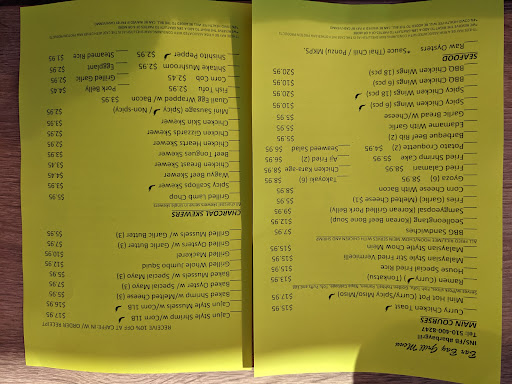 Bar Bay Grill Menu
INS/FB abarbaygrill
Tel: 510-600-8247
MAIN COURSES
Curry Chicken Toast $15.95
Mini Hot Pot (Curry/Spicy Miso/Miso) $12.95
Ramen (Curry) (Tonkotsu) $13.95
House Special Fried Rice $15.95
Malaysian Style Stir Fried Vermicelli $15.95
Malaysian Style Chow Mein $15.95
BBQ Sandwiches $7.95
Seolleongtang (Korean Beef Bone Soup) $12.95
Samgyeopsal (Korean Grilled Pork Belly) $9.95
Fries (Garlic) (Melted Cheese $1) $5.95
Corn Cheese With Bacon $8.95
Gyoza (6) $8.95 Takoyaki (6) $8.95
Fried Calamari $8.95 Chicken Kara-age $8.95
Fried Shrimp Cake $5.95 Aji Fried (2) $6.95
Potato Croquette (2) $4.95 Seaweed Salad $6.95
Barbeque Beef Rib (2) $5.95
Edamame With Garlic $5.95
Garlic Bread W/Cheese $5.95
Spicy Chicken Wings (6 pcs) $10.95
Spicy Chicken Wings (18 pcs) $20.95
BBQ Chicken Wings (6 pcs) $10.95
BBQ Chicken Wings (18 pcs) $20.95
SEAFOOD
Raw Oysters *Sauce (Thai Chili / Ponzu) (MKPS.
RECEIVE 10% OFF AT CAFFE W/ IN ORDER RECEIPT
Cajun Style Shrimp W/Corn 1LB $16.95
Cajun Style Mussels W/Corn 1LB $12.95
Baked Shrimp W/Melted Cheese (2) $5.95
Baked Oyster W/ Spicy Mayo (3) $7.95
Baked Mussels W/ Special Mayo (3) $5.95
Grilled Whole Jumbo Squid $12.95
Grilled Mackerel $9.95
Grilled Oysters w/ Garlic Butter (3) $7.95
Grilled Mussels w/ Garlic Butter (3) $5.95
CHARCOAL SKEWERS
Grilled Lamb Chop
Spicy Scallops Skewer $5.95
Wagyu Beef Skewer $4.45
Chicken Breast Skewer
Beef Tongues Skewer
Chicken Hearts Skewer
Chicken Gizzards Skewer
Chicken Skin Skewer
Mini Sausage (Spicy / Non-spicy) $2.95
Quail Egg Wrapped w/ Bacon $3.95
Fish Tofu $2.95 Pork Belly $4.45
Corn Cob $2.45 Grilled Garlic $2.95
Shiitake Mushroom $2.95 Eggplant $2.95
Shishito Pepper $2.95 Steamed Rice $1.95